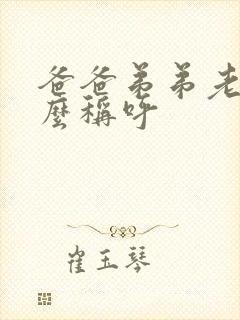 爸爸弟弟老
麼稱呼
崔玉琴